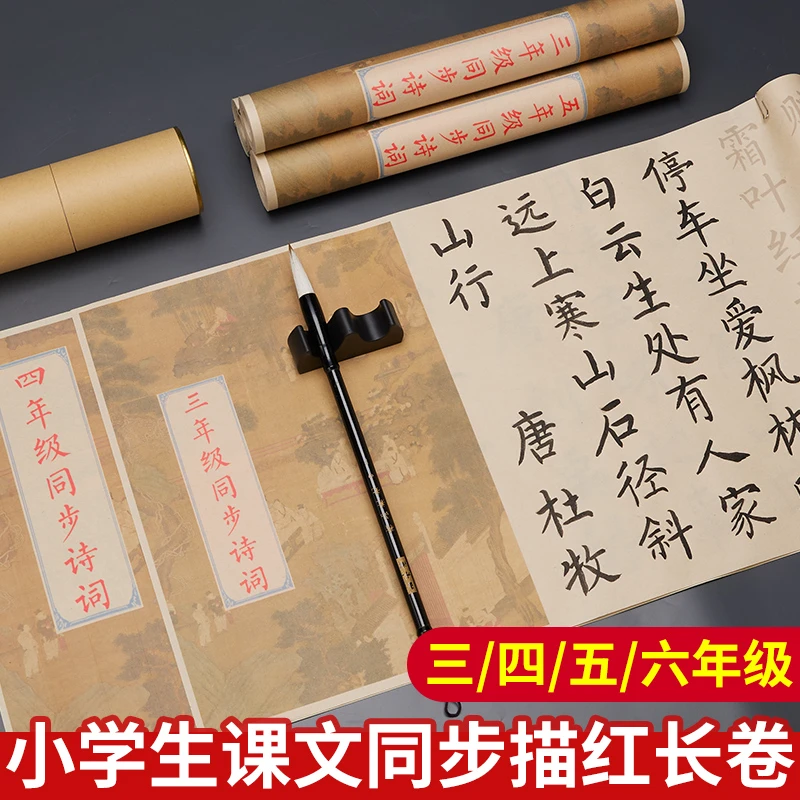 三年级同步诗词
五年级同步诗词
四年级同步诗词
三年级同步诗词
山行
唐 杜牧
远上寒山石径斜
白云生处有人家
停车坐爱枫林
霜叶红
三/四/五/六年级
小学生课文同步描红长卷